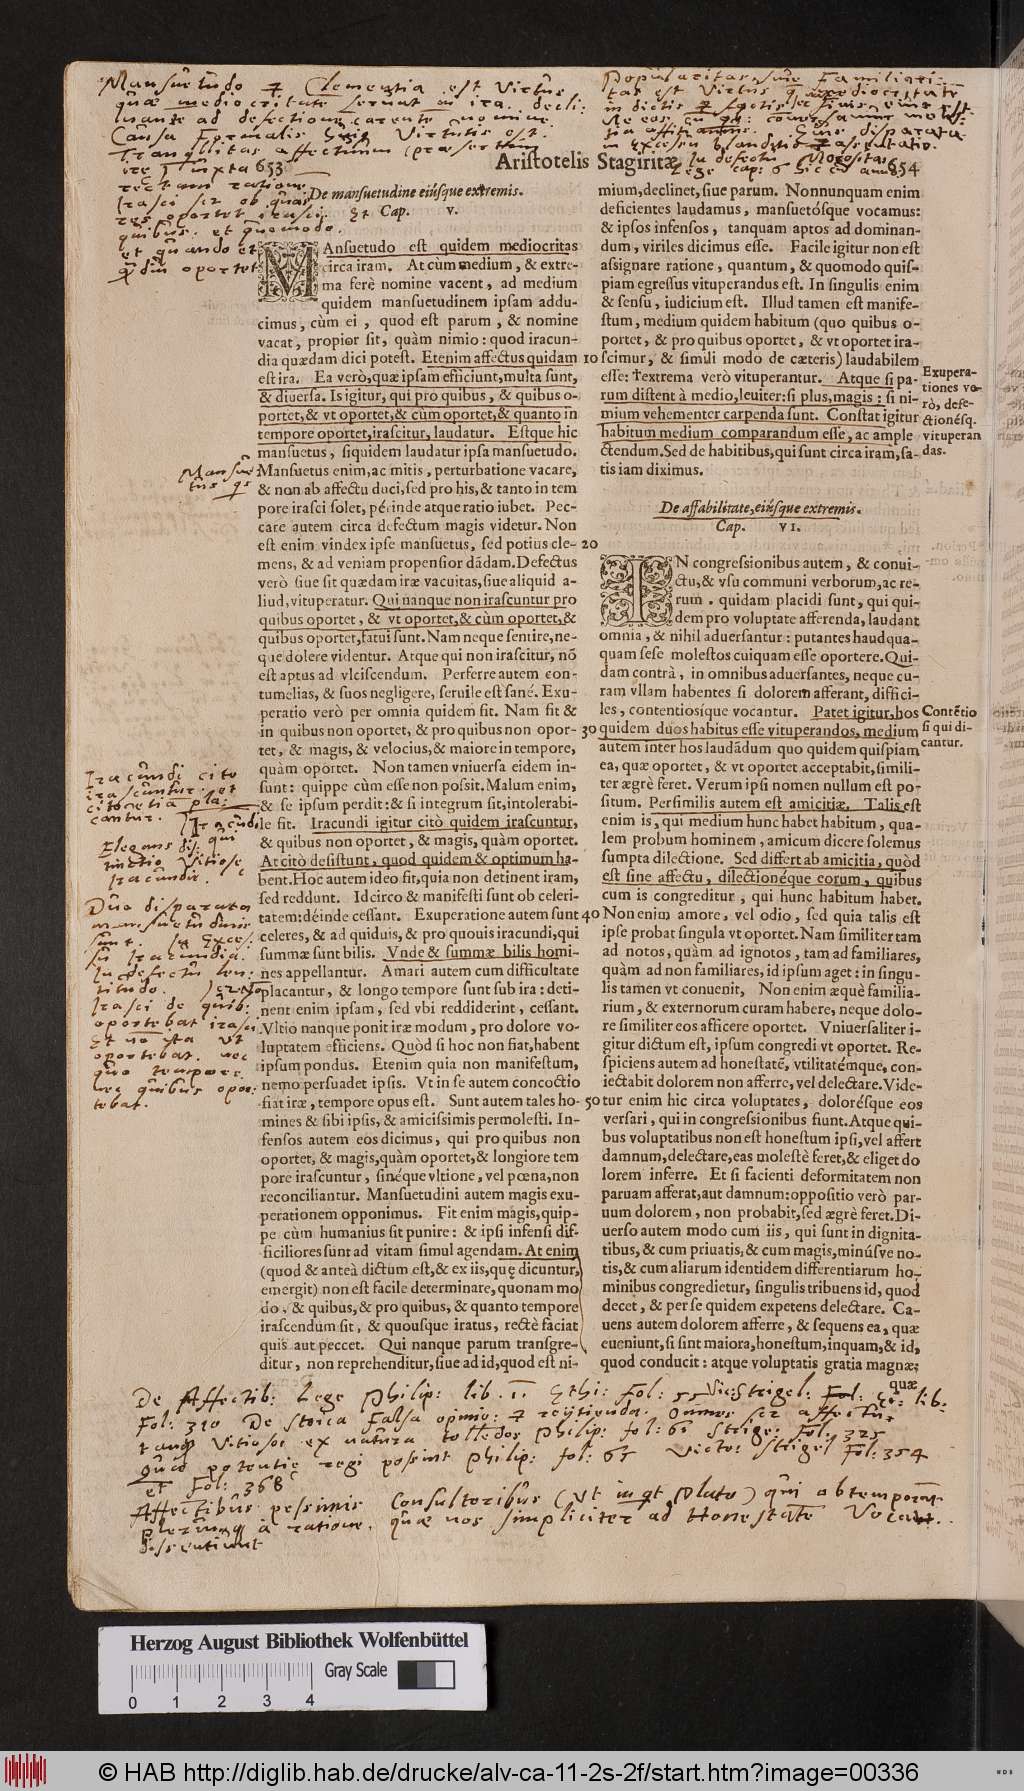 Mansuetudo et Clementia est Virtus
quae mediocritate seruat in ira. decli:
nante ad defectionem carente nomine
Causa Formalis huius Virtutis est
Tranquillitas affectuum (praesertim
irae) iuxta
rectam rationem
Irasci scz ob quas
res oportet irasci
quibus. et quomodo.
et quando et
quamdiu oportet
Popularitas, siue Familiari:
tas est Virtus
in dictis et factis
tia
in excessu blanditia et assentatio.
In defectu Morositas
Lege cap: 6
653
Aristotelis Stagiritæ
654
De mansuetudine eiúsque extremis.
Cap. v.
MAnsuetudo est quidem mediocritas
circa iram. At cùm medium, & extre-
ma ferè nomine vacent, ad medium
quidem mansuetudinem ipsam addu-
cimus, cùm ei, quod est parum, & nomine
vacat, propior sit, quàm nimio: quod iracun-
dia quædam dici potest. Etenim affectus quidam
est ira. Ea verò, quæ ipsam efficiunt, multa sunt,
& diuersa. Is igitur, qui pro quibus, & quibus o-
portet, & vt oportet, & cùm oportet, & quanto in
tempore oportet, irascitur, laudatur. Estque hic
mansuetus, siquidem laudatur ipsa mansuetudo.
Mansuetus enim, ac mitis, perturbatione vacare,
& non ab affectu duci, sed pro his, & tanto in tem
pore irasci solet, périnde atque ratio iubet. Pec-
care autem circa defectum magis videtur. Non
est enim vindex ipse mansuetus, sed potius cle-
mens, & ad veniam propensior dādam. Defectus
verò siue sit quædam iræ vacuitas, siue aliquid a-
liud, vituperatur. Qui nanque non irascuntur pro
quibus oportet, & vt oportet, & cùm oportet, &
quibus oportet, fatui sunt. Nam neque sentire, ne-
que dolere videntur. Atque qui non irascitur, nō
est aptus ad vlciscendum. Perferre autem con-
tumelias, & suos negligere, seruile est sanè. Exu-
peratio verò per omnia quidem fit. Nam fit &
in quibus non oportet, & pro quibus non opor-
tet, & magis, & velocius, & maiore in tempore,
quàm oportet. Non tamen vniuersa eidem in-
sunt: quippe cùm esse non possit. Malum enim,
& se ipsum perdit: & si integrum sit, intolerabi-
le fit. Iracundi igitur citò quidem irascuntur,
& quibus non oportet, & magis, quàm oportet.
At citò desistunt, quod quidem & optimum ha-
bent. Hoc autem ideo fit, quia non detinent iram,
sed reddunt. Idcirco & manifesti sunt ob celeri-
tatem: déinde cessant. Exuperatione autem sunt
celeres, & ad quiduis, & pro quouis iracundi, qui
summæ sunt bilis. Vnde & summæ bilis homi-
nes appellantur. Amari autem cum difficultate
placantur, & longo tempore sunt sub ira: deti-
nent enim ipsam, sed vbi reddiderint, cessant.
Vltio nanque ponit iræ modum, pro dolore vo-
luptatem efficiens. Quòd si hoc non fiat, habent
ipsum pondus. Etenim quia non manifestum,
nemo persuadet ipsis. Vt in se autem concoctio
fiat iræ, tempore opus est. Sunt autem tales ho-
mines & sibi ipsis, & amicissimis permolesti. In-
fensos autem eos dicimus, qui pro quibus non
oportet, & magis, quàm oportet, & longiore tem
pore irascuntur, sinéque vltione, vel pœna, non
reconciliantur. Mansuetudini autem magis exu-
perationem opponimus. Fit enim magis, quip-
pe cùm humanius sit punire: & ipsi infensi dif-
ficiliores sunt ad vitam simul agendam. At enim
(quod & anteà dictum est, & ex iis, quę dicuntur,
emergit) non est facile determinare, quonam mo
do, & quibus, & pro quibus, & quanto tempore
irascendum sit, & quousque iratus, rectè faciat
quis aut peccet. Qui nanque parum transgre-
ditur, non reprehenditur, siue ad id, quod est ni-
Mansue
tus qs
Iracundi cito
irascuntur. et
cito etiam pla:
cantur.
Elegans dis:
tinctio Vitiose
Iracundiae.
Duo disparata
mansuetudinis
sunt. In Exces:
su Iracundia.
In defectu len:
titudo.
Irasci de quib:
oportebat irasci
Et non ita vt
oportebat. nec
quo tempore.
nec quibus opor:
tebat.
10
20
30
40
50
mium, declinet, siue parum. Nonnunquam enim
deficientes laudamus, mansuetósque vocamus:
& ipsos infensos, tanquam aptos ad dominan-
dum, viriles dicimus esse. Facile igitur non est
assignare ratione, quantum, & quomodo quis-
piam egressus vituperandus est. In singulis enim
& sensu, iudicium est. Illud tamen est manife-
stum, medium quidem habitum (quo quibus o-
portet, & pro quibus oportet, & vt oportet ira-
scimur, & simili modo de cæteris) laudabilem
esse: †extrema verò vituperantur. Atque si pa-
rum distent à medio, leuiter: si plus, magis: si ni-
mium vehementer carpenda sunt. Constat igitur
habitum medium comparandum esse, ac ample
ctendum. Sed de habitibus, qui sunt circa iram, sa-
tis iam diximus.
Exupera-
tiones ve-
rò, defe-
ctionésq.
vituperan
das.
De affabilitate, eiúsque extremis.
Cap. VI.
IN congressionibus autem, & conui-
ctu, & vsu communi verborum, ac re-
rum. quidam placidi sunt, qui qui-
dem pro voluptate afferenda, laudant
omnia, & nihil aduersantur: putantes haudqua-
quam sese molestos cuiquam esse oportere. Qui-
dam contrà, in omnibus aduersantes, neque cu-
ram vllam habentes si dolorem afferant, diffici-
les, contentiosíque vocantur. Patet igitur, hos
quidem duos habitus esse vituperandos, medium
autem inter hos laudādum quo quidem quispiam
ea, quæ oportet, & vt oportet acceptabit, simili-
ter ægrè feret. Verum ipsi nomen nullum est po-
situm. Persimilis autem est amicitiæ. Talis est
enim is, qui medium hunc habet habitum, qua-
lem probum hominem, amicum dicere solemus
sumpta dilectione. Sed differt ab amicitia, quòd
est sine affectu, dilectionéque eorum, quibus
cum is congreditur, qui hunc habitum habet.
Non enim amore, vel odio, sed quia talis est
ipse probat singula vt oportet. Nam similiter tam
ad notos, quàm ad ignotos, tam ad familiares,
quàm ad non familiares, id ipsum aget: in singu-
lis tamen vt conuenit, Non enim æquè familia-
rium, & externorum curam habere, neque dolo-
re similiter eos afficere oportet. Vniuersaliter i-
gitur dictum est, ipsum congredi vt oportet. Re-
spiciens autem ad honestatē, vtilitatémque, con-
iectabit dolorem non afferre, vel delectare. Vide-
tur enim hic circa voluptates, dolorésque eos
versari, qui in congressionibus fiunt. Atque qui-
bus voluptatibus non est honestum ipsi, vel affert
damnum, delectare, eas molestè feret, & eliget do
lorem inferre. Et si facienti deformitatem non
paruam afferat, aut damnum: oppositio verò par-
uum dolorem, non probabit, sed ægrè feret. Di-
uerso autem modo cum iis, qui sunt in dignita-
tibus, & cum priuatis, & cum magis, minúsve no-
tis, & cum aliarum identidem differentiarum ho-
minibus congredietur, singulis tribuens id, quod
decet, & per se quidem expetens delectare. Ca-
uens autem dolorem afferre, & sequens ea, quæ
eueniunt, si sint maiora, honestum, inquam, & id,
quod conducit: atque voluptatis gratia magnæ;
quæ
Contētio
si qui di-
cantur.
De Affectib: Lege Philip: lib. II. Ethi: Fol: 55 Vic: Strigel: lib.
Fol: 310 De Stoica falsa opinio: et reijtienda. Omnes scz affectus
tanq vitiosos ex natura tollendos Philip: fol: 61 Strige: Fol: 325
Quo potentię regi possint Philip: fol: 63 Victo: Strigel Fol: 354
et Fol: 368
Affectibus pessimis Consultoribus (vt inqt Plato) qui obtemperat
plerumq à ratione. quae nos simpliciter ad Honestatē Vocant.
dissentiunt
Herzog August Bibliothek Wolfenbüttel
Gray Scale
0 1 2 3 4
© HAB http://diglib.hab.de/drucke/alv-ca-11-2s-2f/start.htm?image=00336